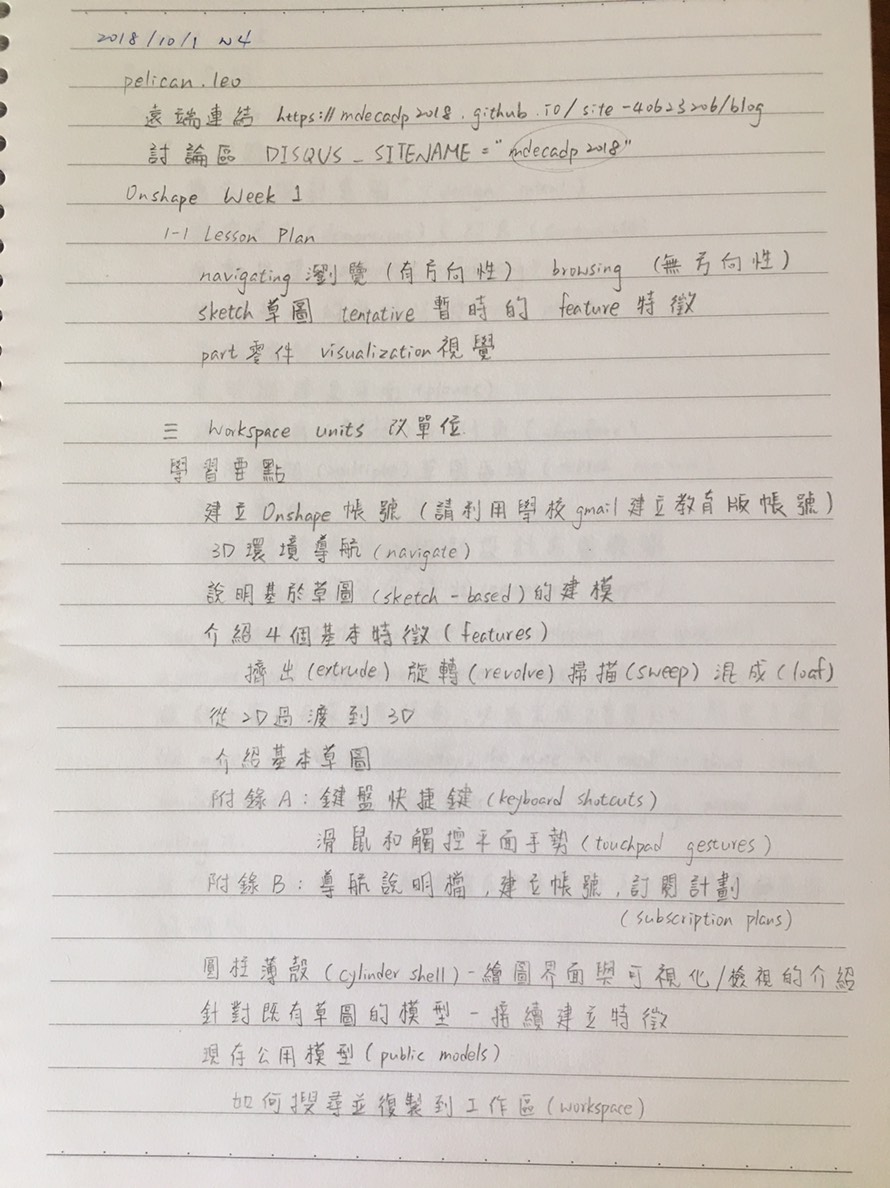 2018/10/1 W4
pelican.leo
遠端連結 https://mdecadp2018.github.io/site-40623206/blog
討論區 DISQUS_SITENAME="mdecadp2018"
Onshape Week 1
1-1 Lesson Plan
navigating 瀏覽(有方向性) browsing (無方向性)
sketch草圖 tentative 暫時的 feature 特徵
part零件 visualization視覺
三 Workspace units 改單位
學習要點
建立Onshape帳號(請利用學校gmail建立教育版帳號)
3D環境導航(navigate)
說明基於草圖(sketch-based)的建模
介紹4個基本特徵(features)
擠出(extrude)旋轉(revolve)掃描(sweep)混成(loaf)
從2D過渡到3D
介紹基本草圖
附錄A:鍵盤快捷鍵(keyboard shotcuts)
滑鼠和觸控平面手勢(touchpad gestures)
附錄B:導航說明檔,建立帳號,訂閱計劃
(subscription plans)
圓柱薄殼(cylinder shell)-繪圖界面與可視化/檢視的介紹
針對既有草圖的模型-接續建立特徵
現存公用模型(public models)
如何搜尋並復製到工作區(workspace)